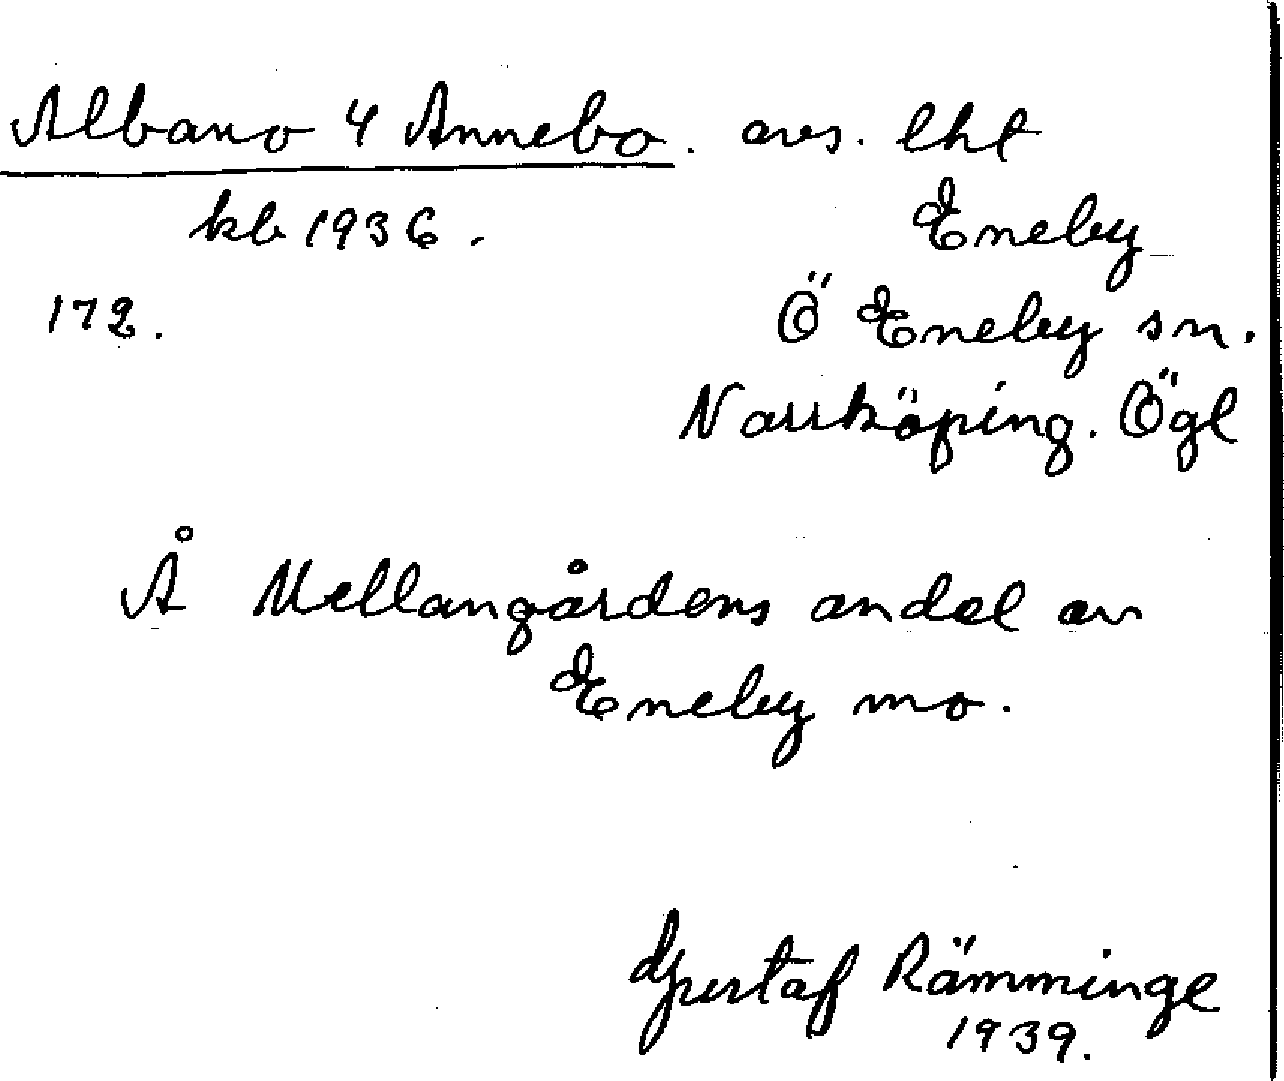 Albano 4 Annebo. avs. lht
kb 1936.
Eneby
172.
Ö Eneby sn.
Norrköping. Ögl
Å Mellangårdens andel av
Eneby mo.
Gustaf Rämminge
1939.